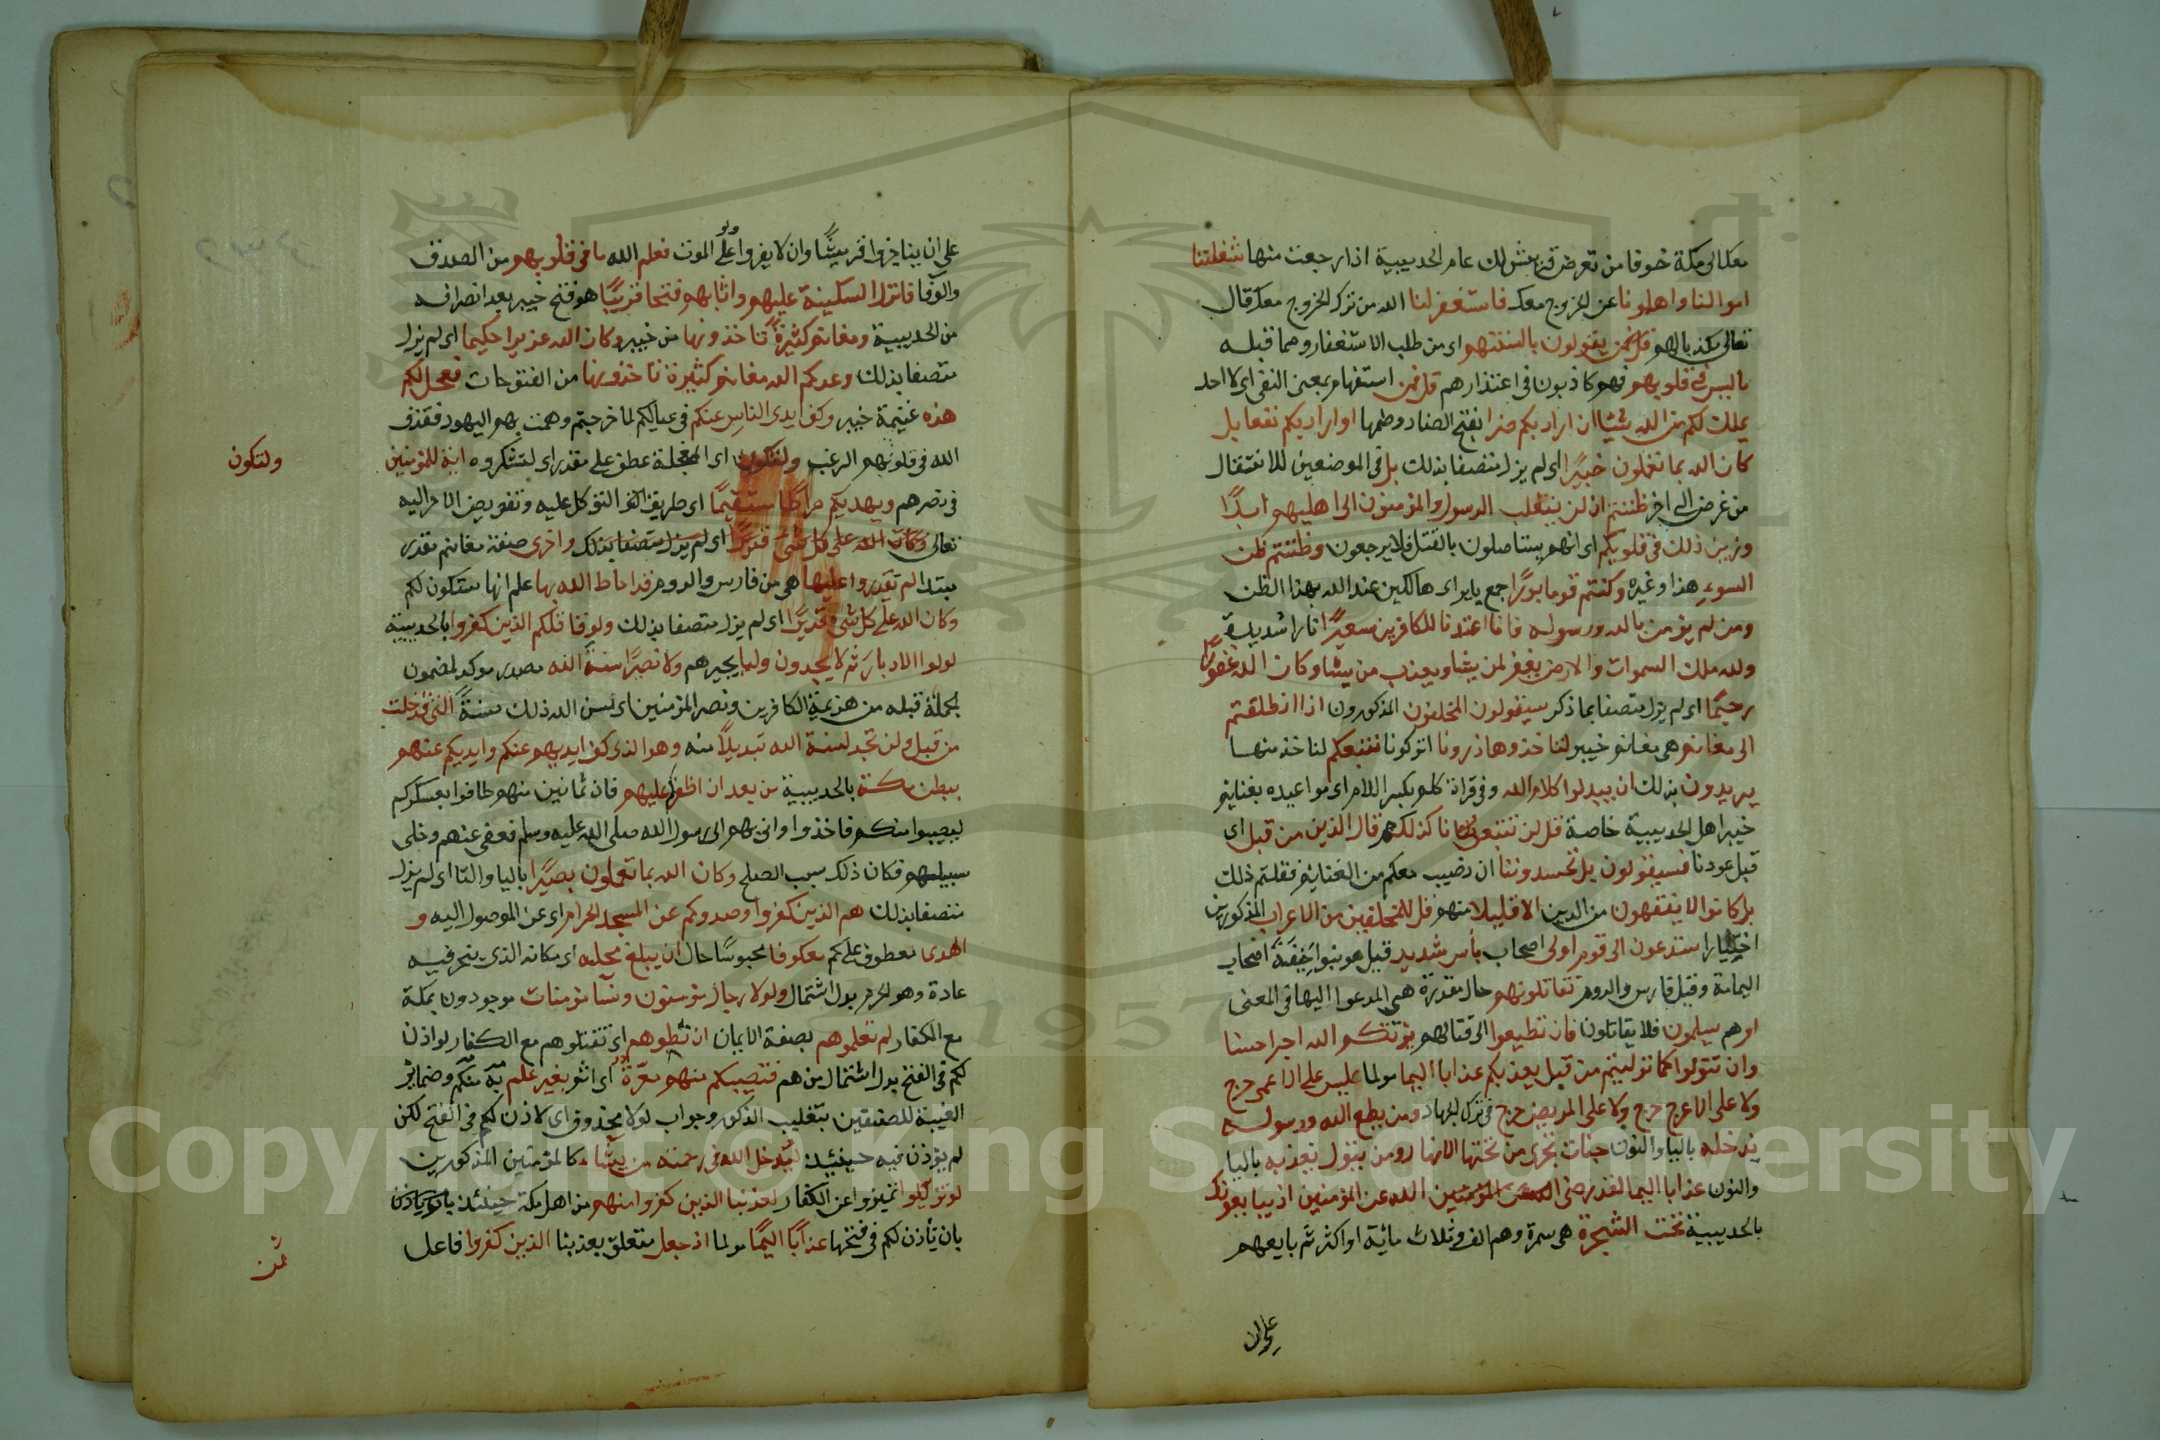 معك الى مكة خوفا من تعرض قريش لك عام الحديبية اذا رجعت منها شغلتنا
اموالنا واهلونا عن الخروج معك فاستغفر لنا الله من ترك الخروج معك قال
تعالى مكذبا لهم يقولون بالسنتهم اى من طلب الاستغفار وما قبله
ما ليس فى قلوبهم فهم كاذبون فى اعتذارهم قل فمن استفهام بمعنى النفى اى لا احد
يملك لكم من الله شيئا ان اراد بكم ضرا بفتح الضاد وضمها او اراد بكم نفعا بل
كان الله بما تعملون خبيرا اى لم يزل متصفا بذلك بل فى الموضعين للانتقال
من غرض الى اخر ظننتم ان لن ينقلب الرسول والمؤمنون الى اهليهم ابدا
وزين ذلك فى قلوبكم اى انهم يستاصلون بالقتل فلا يرجعون وظننتم ظن
السوء هذا وغيره وكنتم قوما بورا جمع باير اى هالكين عند الله بهذا الظن
ومن لم يؤمن بالله ورسوله فانا اعتدنا للكافرين سعيرا نارا شديدة
ولله ملك السموات والارض يغفر لمن يشا ويعذب من يشا وكان الله غفورا
رحيما اى لم يزل متصفا بما ذكر سيقولون المخلفون المذكورون اذا انطلقتم
الى مغانم هى مغانم خيبر لتاخذوها ذرونا اتركونا نتبعكم لناخذ منها
يريدون بذلك ان يبدلوا كلام الله وفى قراة كلم بكسر اللام اى مواعيده بغنايم
خيبر اهل الحديبية خاصة قل لن تتبعونا كذلكم قال الذين من قبل اى
قبل عودنا فسيقولون بل تحسدوننا ان نصيب معكم من الغنايم فقلتم ذلك
بل كانوا لا يفقهون من الدين الا قليلا منهم قل للمخلفين من الاعراب المذكورين
اختيارا ستدعون الى قوم اولى اصحاب باس شديد قيل هم بنوا حنيفة اصحاب
اليمامة وقيل فارس والروم تقاتلونهم حال مقدرة هى المدعوا اليها فى المعنى
او هم يسلمون فلا يقاتلون فان تطيعوا الى قتالهم يؤتكم الله اجرا حسنا
وان تتولوا كما توليتم من قبل يعذبكم عذابا اليما مولما ليس على الاعمى حرج
ولا على الاعرج حرج ولا على المريض حرج فى ترك الجهاد ومن يطع الله ورسوله
يدخله باليا والنون جنات تجرى من تحتها الانهار ومن يتول يعذبه باليا
والنون عذابا اليما لقد رضى الله عن المؤمنين اذ يبايعونك
بالحديبية تحت الشجرة هى سمرة وهم الف وثلاث مائة او اكثر ثم بايعهم
على ان
على ان يناجزوا قريشا وان لا يفروا على الموت فعلم الله ما فى قلوبهم من الصدق
والوفا فانزل السكينة عليهم واثابهم فتحا قريبا هو فتح خيبر بعد انصرافه
من الحديبية ومغانم كثيرة تاخذونها من خيبر وكان الله عزيزا حكيما اى لم يزل
متصفا بذلك وعدكم الله مغانم كثيرة تاخذونها من الفتوحات فعجل لكم
هذه غنيمة خيبر وكف ايدى الناس عنكم فى عيالكم لما خرجتم وهمت بهم اليهود فقذف
الله فى قلوبهم الرعب ولتكون اى المعجلة عطف على مقدر اى لتشكروه اية للمؤمنين
ولتكون
فى نصرهم ويهديكم صراطا مستقيما اى طريق التوكل عليه وتفويض الامر اليه
تعالى وكان الله على كل شى قديرا اى لم يزل متصفا بذلك واخرى صفة مغانم مقدر
مبتدا لم تقدروا عليها هى من فارس والروم قد احاط الله بها علم انها ستكون لكم
وكان الله على كل شى قديرا اى لم يزل متصفا بذلك ولو قاتلكم الذين كفروا بالحديبية
لولوا الادبار ثم لا يجدون وليا يجيرهم ولا نصيرا سنة الله مصدر موكد لمضمون
الجملة قبله من هزيمة الكافرين ونصر المؤمنين اى سن الله ذلك سنة التى قد خلت
من قبل ولن تجد لسنة الله تبديلا منه وهو الذى كف ايديهم عنكم وايديكم عنهم
ببطن مكة بالحديبية من بعد ان اظفركم عليهم فان ثمانين منهم طافوا بعسكركم
ليصيبوا منكم فاخذوا واتى بهم الى رسول الله صلى الله عليه وسلم فعفى عنهم وخلى
سبيلهم فكان ذلك سبب الصلح وكان الله بما تعملون بصيرا باليا والتا اى لم يزل
متصفا بذلك هم الذين كفروا وصدوكم عن المسجد الحرام اى عن الوصول اليه و
الهدى معطوف على كم معكوفا محبوسا حال ان يبلغ محله اى مكانه الذى ينحر فيه
عادة وهو الحرم بدل اشتمال ولولا رجال مؤمنون ونسا مؤمنات موجودون بمكة
مع الكفار لم تعلموهم بصفة الايمان ان تطوهم اى تقتلوهم مع الكفار لو اذن
لكم فى الفتح بدل اشتمال من هم فتصيبكم منهم معرة اى اثم بغير علم به منكم وضمائر
الغيبة للصنفين بتغليب الذكور وجواب لولا محذوف اى لاذن لكم فى الفتح لكن
لم يؤذن فيه حينئذ ليدخل الله فى رحمته من يشاء كالمؤمنين المذكورين
لو تزيلوا تميزوا عن الكفار لعذبنا الذين كفروا منهم من اهل مكة حينئذ
بان ياذن لكم فى فتحها عذابا اليما مولما اذ جعل متعلق بعذبنا الذين كفروا فاعل
Copyright © King Saud University
1957